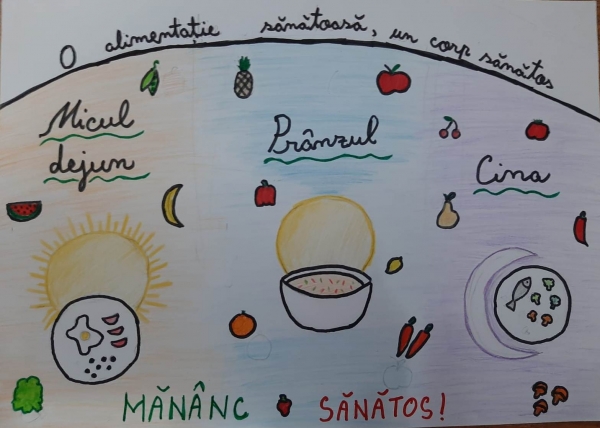 O alimentație sănătoasă, un corp sănătos
Micul
dejun
Prânzul
Cina
MĂNÂNC SĂNĂTOS!